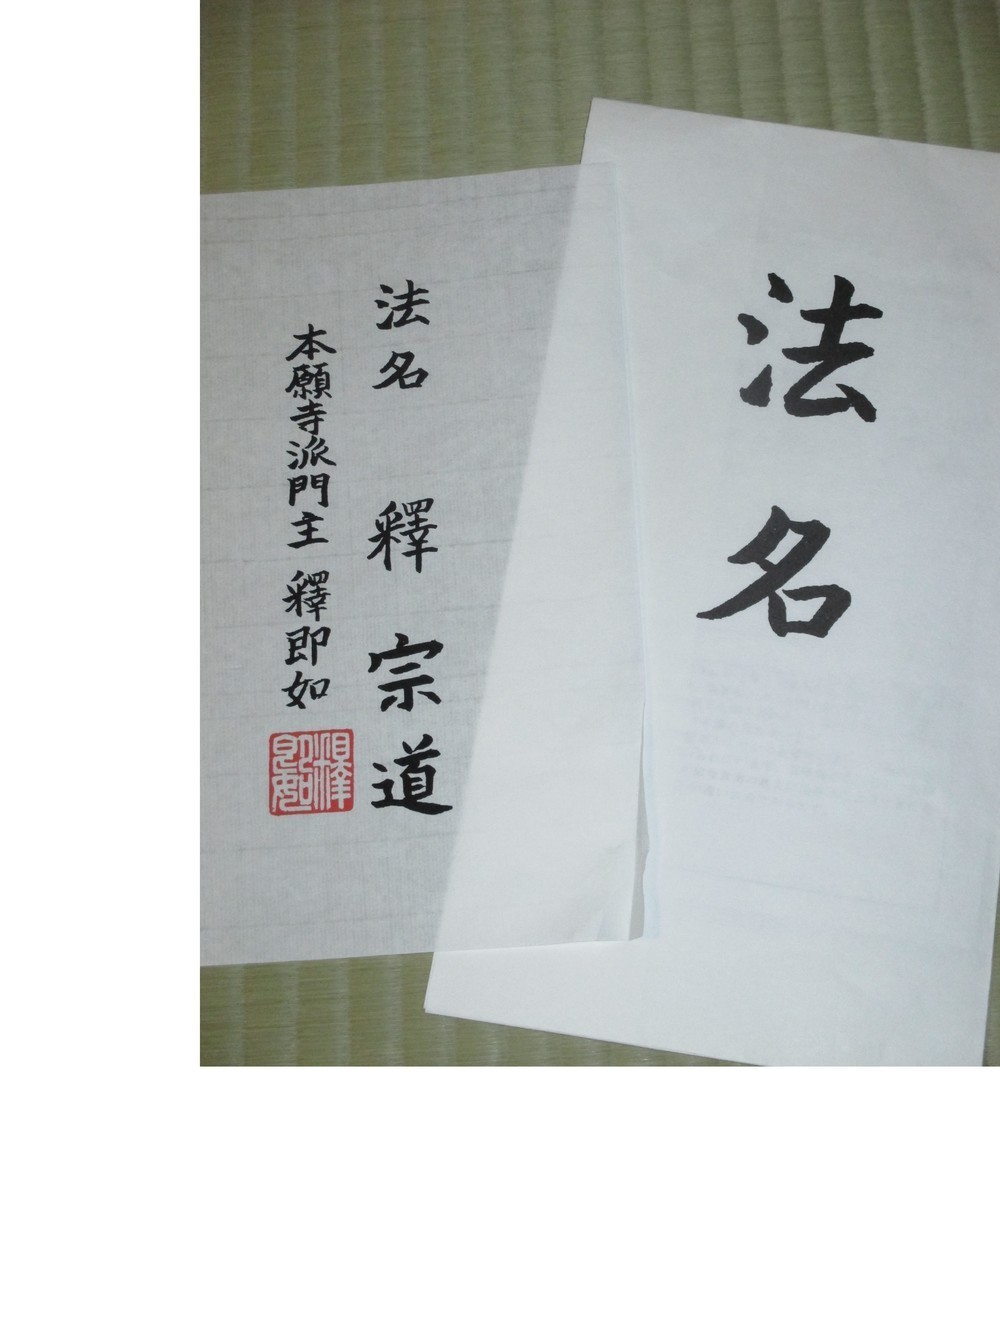 法名
法名 釋 宗道
本願寺派門主 釋即如
釋即如